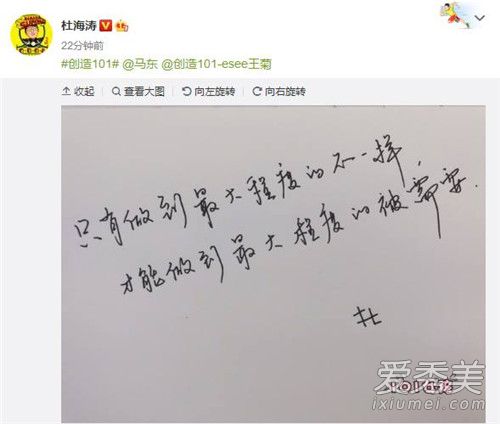 杜海涛
22分钟前
#创造101# @马东 @创造101-esee王菊
收起 查看大图 向左旋转 向右旋转
只有做到最大程度的不一样,
才能做到最大程度的被需要.
杜
爱秀美
ixiumei.com